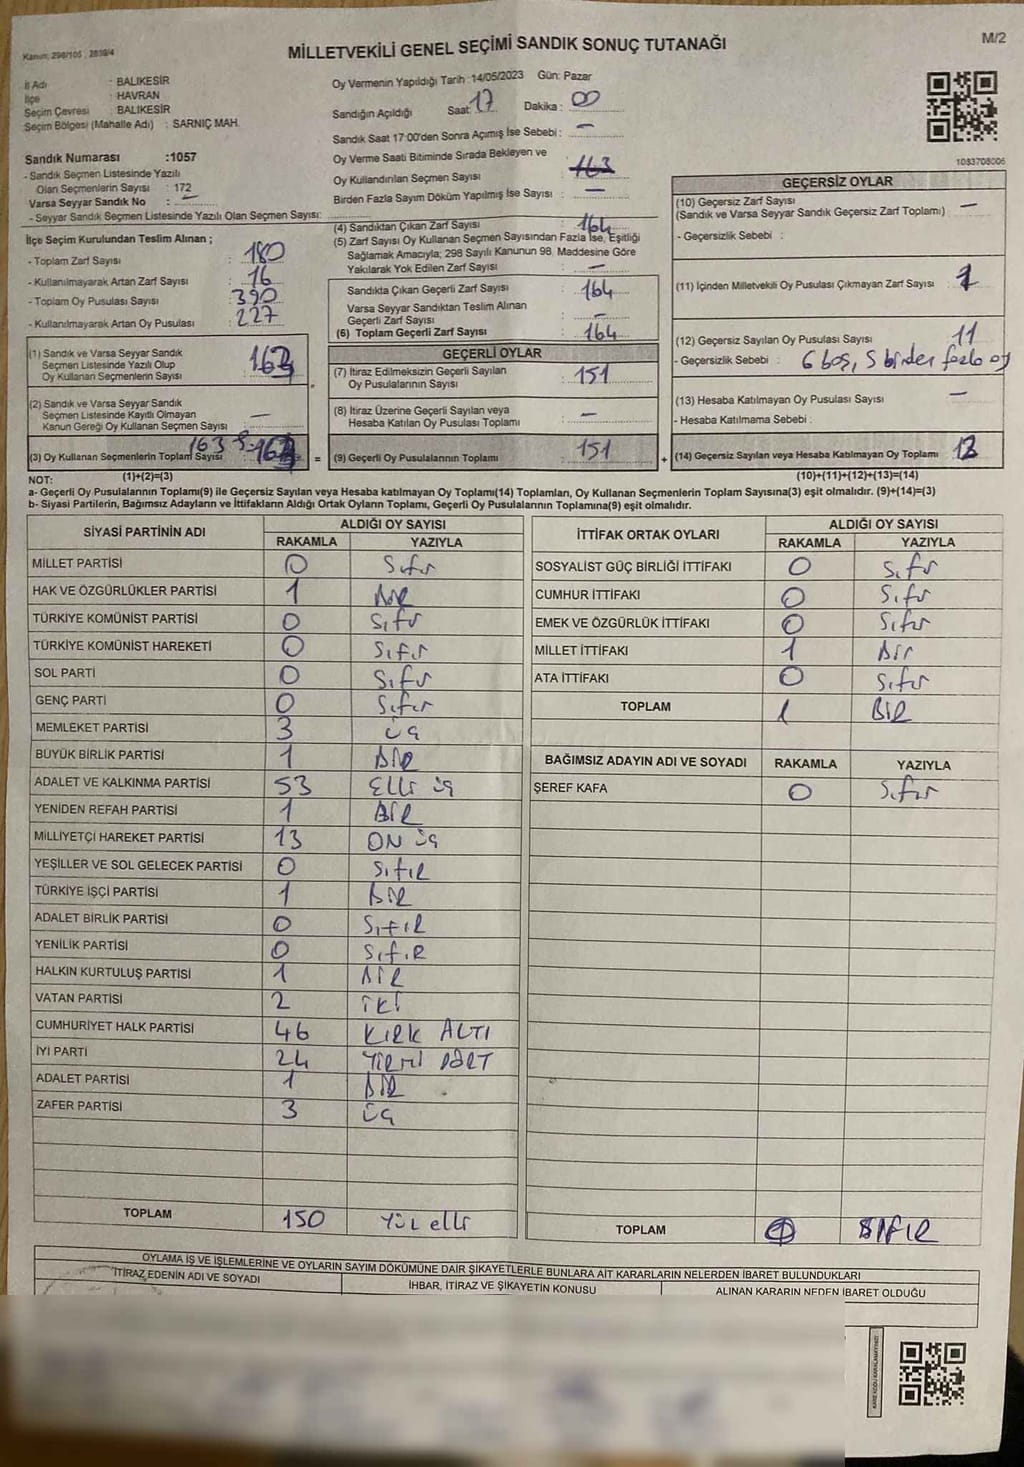 Kanun: 298/105 , 2839/4
MİLLETVEKİLİ GENEL SEÇİMİ SANDIK SONUÇ TUTANAĞI
M/2
İl Adı : BALIKESİR
İlçe : HAVRAN
Seçim Çevresi : BALIKESİR
Seçim Bölgesi (Mahalle Adı) : SARNIÇ MAH.
Oy Vermenin Yapıldığı Tarih :14/05/2023 Gün: Pazar
Sandığın Açıldığı Saat: 17 Dakika : 00
Sandık Saat 17:00'den Sonra Açımış İse Sebebi : —
Oy Verme Saati Bitiminde Sırada Bekleyen ve
Oy Kullandırılan Seçmen Sayısı : 163
Birden Fazla Sayım Döküm Yapılmış İse Sayısı : —
1083708006
Sandık Numarası :1057
- Sandık Seçmen Listesinde Yazılı
Olan Seçmenlerin Sayısı : 172
Varsa Seyyar Sandık No : —
- Seyyar Sandık Seçmen Listesinde Yazılı Olan Seçmen Sayısı:
İlçe Seçim Kurulundan Teslim Alınan ;
- Toplam Zarf Sayısı : 180
- Kullanılmayarak Artan Zarf Sayısı : 16
- Toplam Oy Pusulası Sayısı : 390
- Kullanılmayarak Artan Oy Pusulası : 227
(1) Sandık ve Varsa Seyyar Sandık
Seçmen Listesinde Yazılı Olup
Oy Kullanan Seçmenlerin Sayısı :
(2) Sandık ve Varsa Seyyar Sandık
Seçmen Listesinde Kayıtlı Olmayan
Kanun Gereği Oy Kullanan Seçmen Sayısı : —
(3) Oy Kullanan Seçmenlerin Toplam Sayısı : 163
(1)+(2)=(3)
(4) Sandıktan Çıkan Zarf Sayısı : 164
(5) Zarf Sayısı Oy Kullanan Seçmen Sayısından Fazla İse, Eşitliği
Sağlamak Amacıyla; 298 Sayılı Kanunun 98. Maddesine Göre
Yakılarak Yok Edilen Zarf Sayısı : —
Sandıkta Çıkan Geçerli Zarf Sayısı : 164
Varsa Seyyar Sandıktan Teslim Alınan
Geçerli Zarf Sayısı : —
(6) Toplam Geçerli Zarf Sayısı : 164
GEÇERLİ OYLAR
(7) İtiraz Edilmeksizin Geçerli Sayılan
Oy Pusulalarının Sayısı : 151
(8) İtiraz Üzerine Geçerli Sayılan veya
Hesaba Katılan Oy Pusulası Toplamı : —
= (9) Geçerli Oy Pusulalarının Toplamı : 151
GEÇERSİZ OYLAR
(10) Geçersiz Zarf Sayısı : —
(Sandık ve Varsa Seyyar Sandık Geçersiz Zarf Toplamı)
- Geçersizlik Sebebi :
(11) İçinden Milletvekili Oy Pusulası Çıkmayan Zarf Sayısı : 1
(12) Geçersiz Sayılan Oy Pusulası Sayısı : 11
- Geçersizlik Sebebi : 6 boş, 5 birden fazla oy
(13) Hesaba Katılmayan Oy Pusulası Sayısı : —
- Hesaba Katılmama Sebebi :
+ (14) Geçersiz Sayılan veya Hesaba Katılmayan Oy Toplamı :
(10)+(11)+(12)+(13)=(14)
NOT:
a- Geçerli Oy Pusulalarının Toplamı(9) ile Geçersiz Sayılan veya Hesaba katılmayan Oy Toplamı(14) Toplamları, Oy Kullanan Seçmenlerin Toplam Sayısına(3) eşit olmalıdır. (9)+(14)=(3)
b- Siyasi Partilerin, Bağımsız Adayların ve İttifakların Aldığı Ortak Oyların Toplamı, Geçerli Oy Pusulalarının Toplamına(9) eşit olmalıdır.
SİYASİ PARTİNİN ADI ALDIĞI OY SAYISI
RAKAMLA YAZIYLA
MİLLET PARTİSİ 0 Sıfır
HAK VE ÖZGÜRLÜKLER PARTİSİ 1 BİR
TÜRKİYE KOMÜNİST PARTİSİ 0 Sıfır
TÜRKİYE KOMÜNİST HAREKETİ 0 Sıfır
SOL PARTİ 0 Sıfır
GENÇ PARTİ 0 Sıfır
MEMLEKET PARTİSİ 3 üç
BÜYÜK BİRLİK PARTİSİ 1 BİR
ADALET VE KALKINMA PARTİSİ 53 Elli üç
YENİDEN REFAH PARTİSİ 1 BİR
MİLLİYETÇİ HAREKET PARTİSİ 13 ON üç
YEŞİLLER VE SOL GELECEK PARTİSİ 0 SıfıR
TÜRKİYE İŞÇİ PARTİSİ 1 BİR
ADALET BİRLİK PARTİSİ 0 SıfıR
YENİLİK PARTİSİ 0 SıfıR
HALKIN KURTULUŞ PARTİSİ 1 BİR
VATAN PARTİSİ 2 İKİ
CUMHURİYET HALK PARTİSİ 46 KIRK ALTI
İYİ PARTİ 24 YİRMİ DÖRT
ADALET PARTİSİ 1 BİR
ZAFER PARTİSİ 3 üç
TOPLAM 150 Yüz elli
İTTİFAK ORTAK OYLARI ALDIĞI OY SAYISI
RAKAMLA YAZIYLA
SOSYALİST GÜÇ BİRLİĞİ İTTİFAKI 0 Sıfır
CUMHUR İTTİFAKI 0 Sıfır
EMEK VE ÖZGÜRLÜK İTTİFAKI 0 Sıfır
MİLLET İTTİFAKI 1 Bir
ATA İTTİFAKI 0 Sıfır
TOPLAM 1 BİR
BAĞIMSIZ ADAYIN ADI VE SOYADI RAKAMLA YAZIYLA
ŞEREF KAFA 0 Sıfır
TOPLAM SIFIR
OYLAMA İŞ VE İŞLEMLERİNE VE OYLARIN SAYIM DÖKÜMÜNE DAİR ŞİKAYETLERLE BUNLARA AİT KARARLARIN NELERDEN İBARET BULUNDUKLARI
İTİRAZ EDENİN ADI VE SOYADI İHBAR, İTİRAZ VE ŞİKAYETİN KONUSU ALINAN KARARIN NEDEN İBARET OLDUĞU